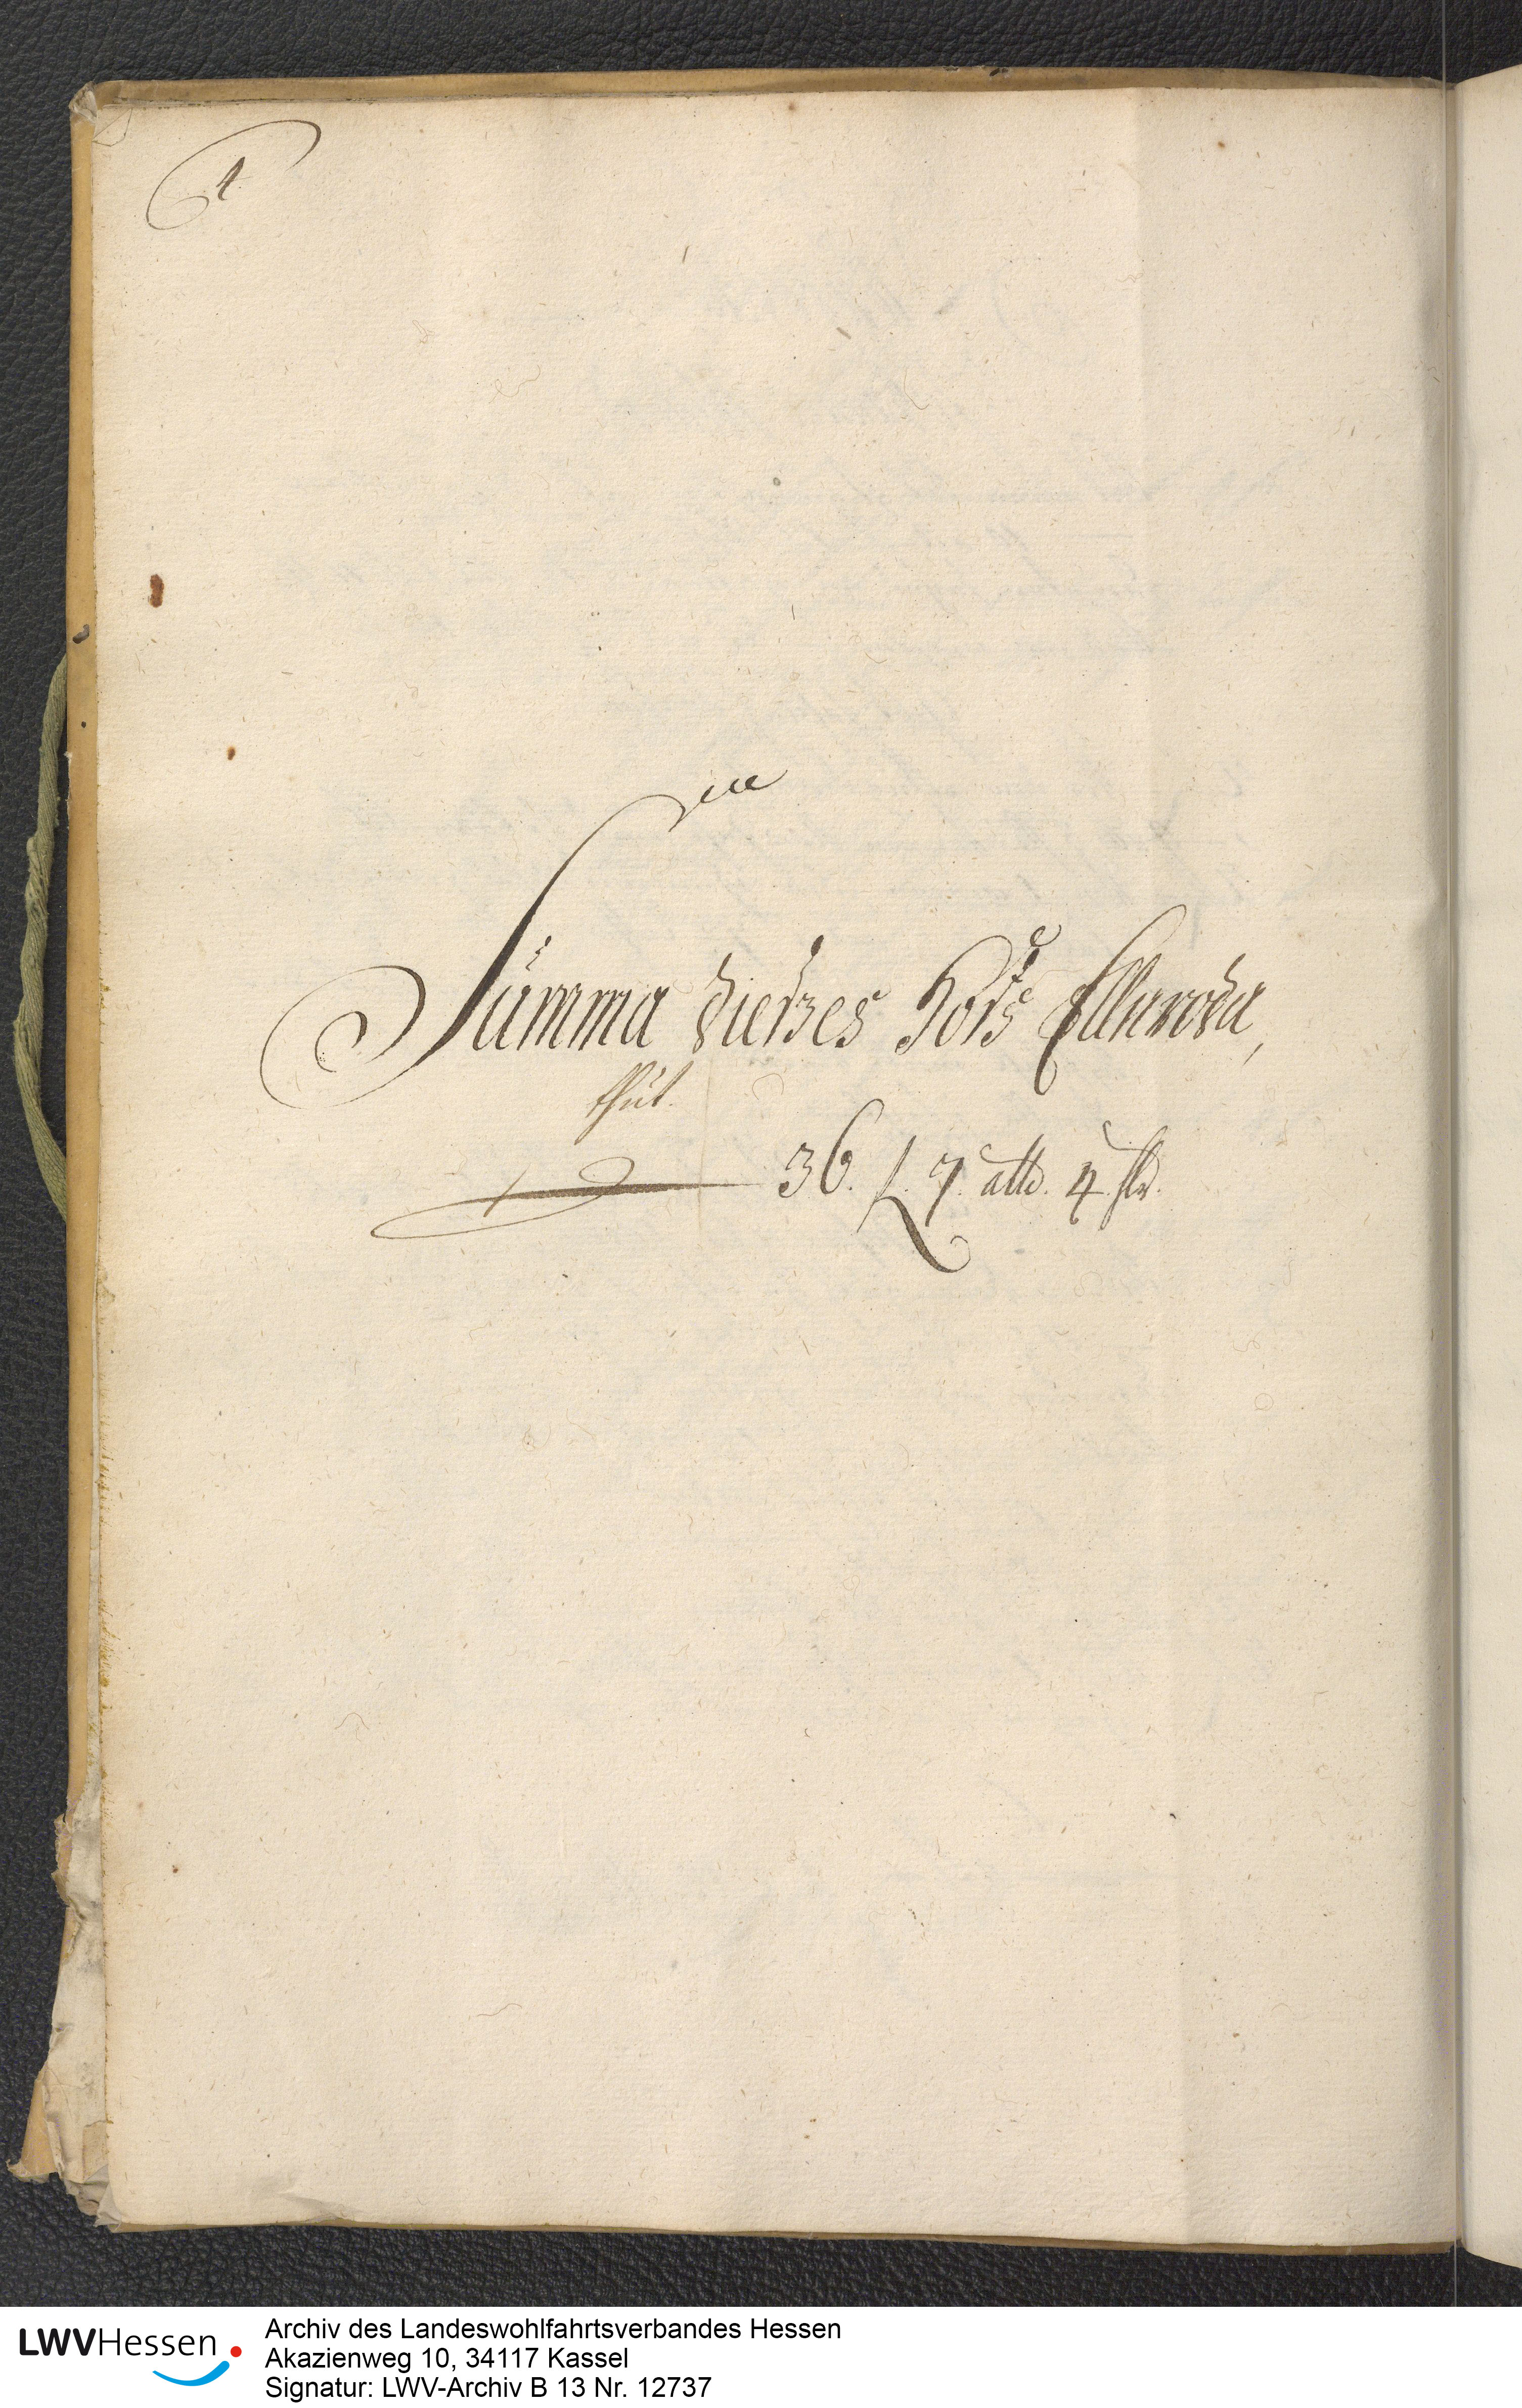 4.
Summa dießes Dorfs Ellnroda,
thut.
36. L. 7. alb. 4. hlr.
LWVHessen
Archiv des Landeswohlfahrtsverbandes Hessen
Akazienweg 10, 34117 Kassel
Signatur: LWV-Archiv B 13 Nr. 12737